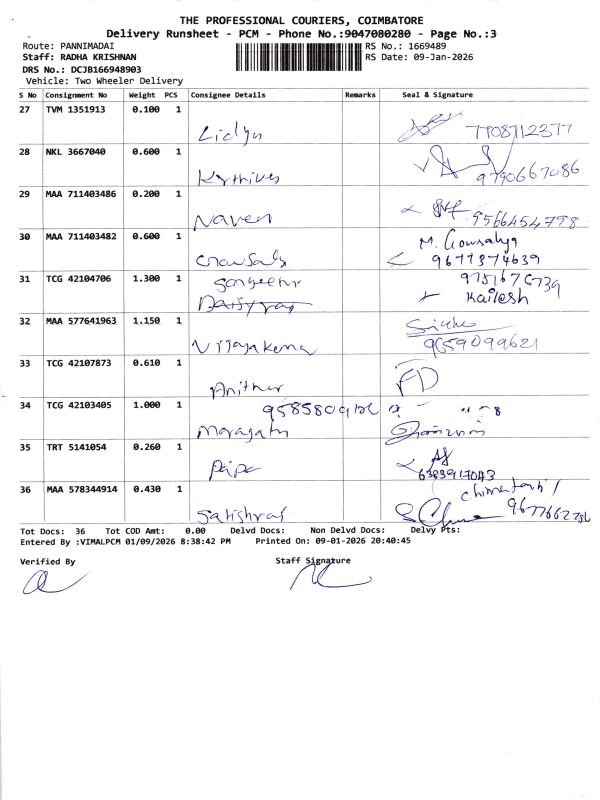 THE PROFESSIONAL COURIERS, COIMBATORE
Delivery Runsheet - PCM - Phone No.:9047080280 - Page No.:3
Route: PANNIMADAI RS No.: 1669489
Staff: RADHA KRISHNAN RS Date: 09-Jan-2026
DRS No.: DCJB166948903
Vehicle: Two Wheeler Delivery
S No Consignment No Weight PCS Consignee Details Remarks Seal & Signature
27 TVM 1351913 0.100 1
7708712377
28 NKL 3667040 0.600 1
9790667086
29 MAA 711403486 0.200 1
Naveen 9566454798
30 MAA 711403482 0.600 1
M. Gowsalya
9677374639
31 TCG 42104706 1.300 1
Kailesh
32 MAA 577641963 1.150 1
Vijayakumar 9659099621
33 TCG 42107873 0.610 1
34 TCG 42103405 1.000 1
35 TRT 5141054 0.260 1
6383917043
36 MAA 578344914 0.430 1
Tot Docs: 36 Tot COD Amt: 0.00 Delvd Docs: Non Delvd Docs: Delvy Pts:
Entered By :VIMALPCM 01/09/2026 8:38:42 PM Printed On: 09-01-2026 20:40:45
Verified By Staff Signature